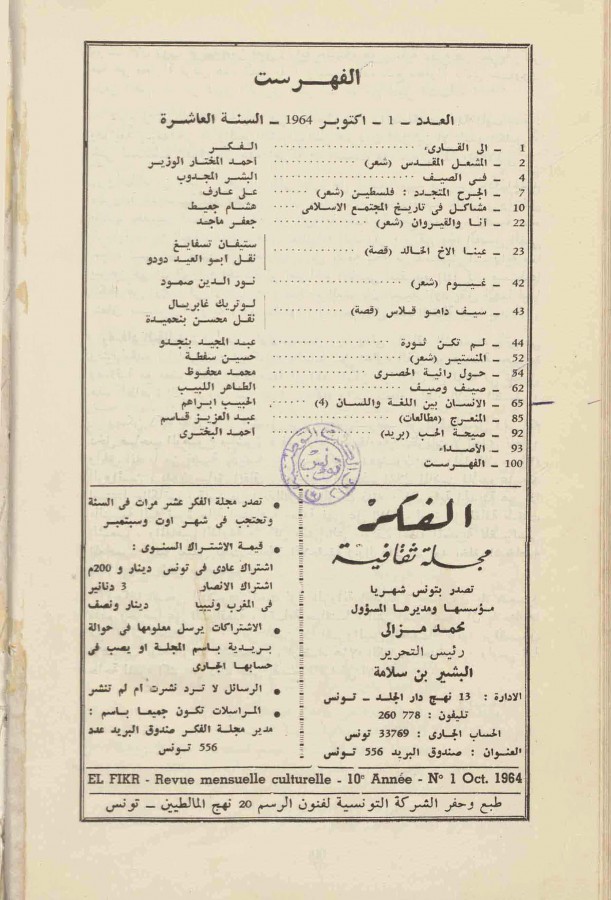 الفهرست
العدد ـ 1 ـ اكتوبر 1964 ـ السنة العاشرة
1 ـ الى القارىء ............ الفكر
2 ـ المشعل المقدس (شعر) ............ احمد المختار الوزير
4 ـ في الصيف ............ البشير المجدوب
7 ـ الجرح المتجدد : فلسطين (شعر) ............ على عارف
10 ـ مشاكل في تاريخ المجتمع الاسلامى ............ هشام جعيط
22 ـ أنا والقيروان (شعر) ............ جعفر ماجد
23 ـ عينا الاخ الخالد (قصة) ............ ستيفان تسفايغ
نقل ابو العيد دودو
42 ـ غيوم (شعر) ............ نور الدين صمود
43 ـ سيف دامو قلاس (قصة) ............ لوتريك غابريال
نقل محسن بنحميدة
44 ـ لم تكن ثورة ............ عبد المجيد بنجدو
52 ـ المنستير (شعر) ............ حسين سفطة
54 ـ حول رائية الحصرى ............ محمد محفوظ
62 ـ صيف وصيف ............ الطاهر اللبيب
65 ـ الانسان بين اللغة واللسان (4) ............ الحبيب ابراهم
85 ـ المنعرج (مطالعات) ............ عبد العزيز قاسم
92 ـ صيحة الحب (بريد) ............ احمد البخترى
93 ـ الأصداء
100 ـ الفهرست
الفكر
مجلة ثقافية
تصدر بتونس شهريا
مؤسسها ومديرها المسؤول
محمد مزالى
رئيس التحرير
البشير بن سلامة
الادارة : 13 نهج دار الجلد ـ تونس
تليفون : 778 260
الحساب الجارى : 33769 تونس
العنوان : صندوق البريد 556 تونس
• تصدر مجلة الفكر عشر مرات فى السنة
وتحتجب فى شهر اوت وسبتمبر
• قيمة الاشتراك السنوى :
اشتراك عادى فى تونس دينار و 200م
اشتراك الانصار 3 دنانير
فى المغرب وليبيا دينار ونصف
• الاشتراكات يرسل معلومها فى حوالة
بريدية باسم المجلة او يصب فى
حسابها الجارى
• الرسائل لا ترد نشرت ام لم تنشر
• المراسلات تكون جميعا باسم :
مدير مجلة الفكر صندوق البريد عدد
556 تونس
EL FIKR - Revue mensuelle culturelle - 10e Année - No 1 Oct. 1964
طبع وحفر الشركة التونسية لفنون الرسم 20 نهج المالطيين ـ تونس